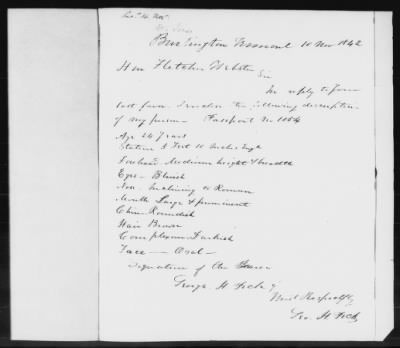 Burlington Vermont 10 Nov 1842
Hon Fletcher Webster
Sir
In reply to your
last favor I render the following description
of my person — Passport No 1054
Age 24 Years
Stature 5 Feet 10 Inches Eng
Forehead Medium height & breadth
Eyes — Bluish
Nose Inclining to Roman
Mouth Large & prominent
Chin Roundish
Hair Brown
Complexion Darkish
Face — Oval —
Signature of the Bearer
George H
Most Respectfully
Geo. H